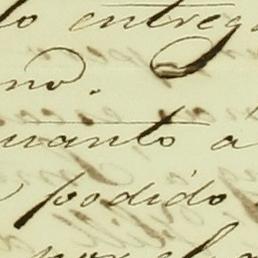 lo entreg
no.
uanto a
podido